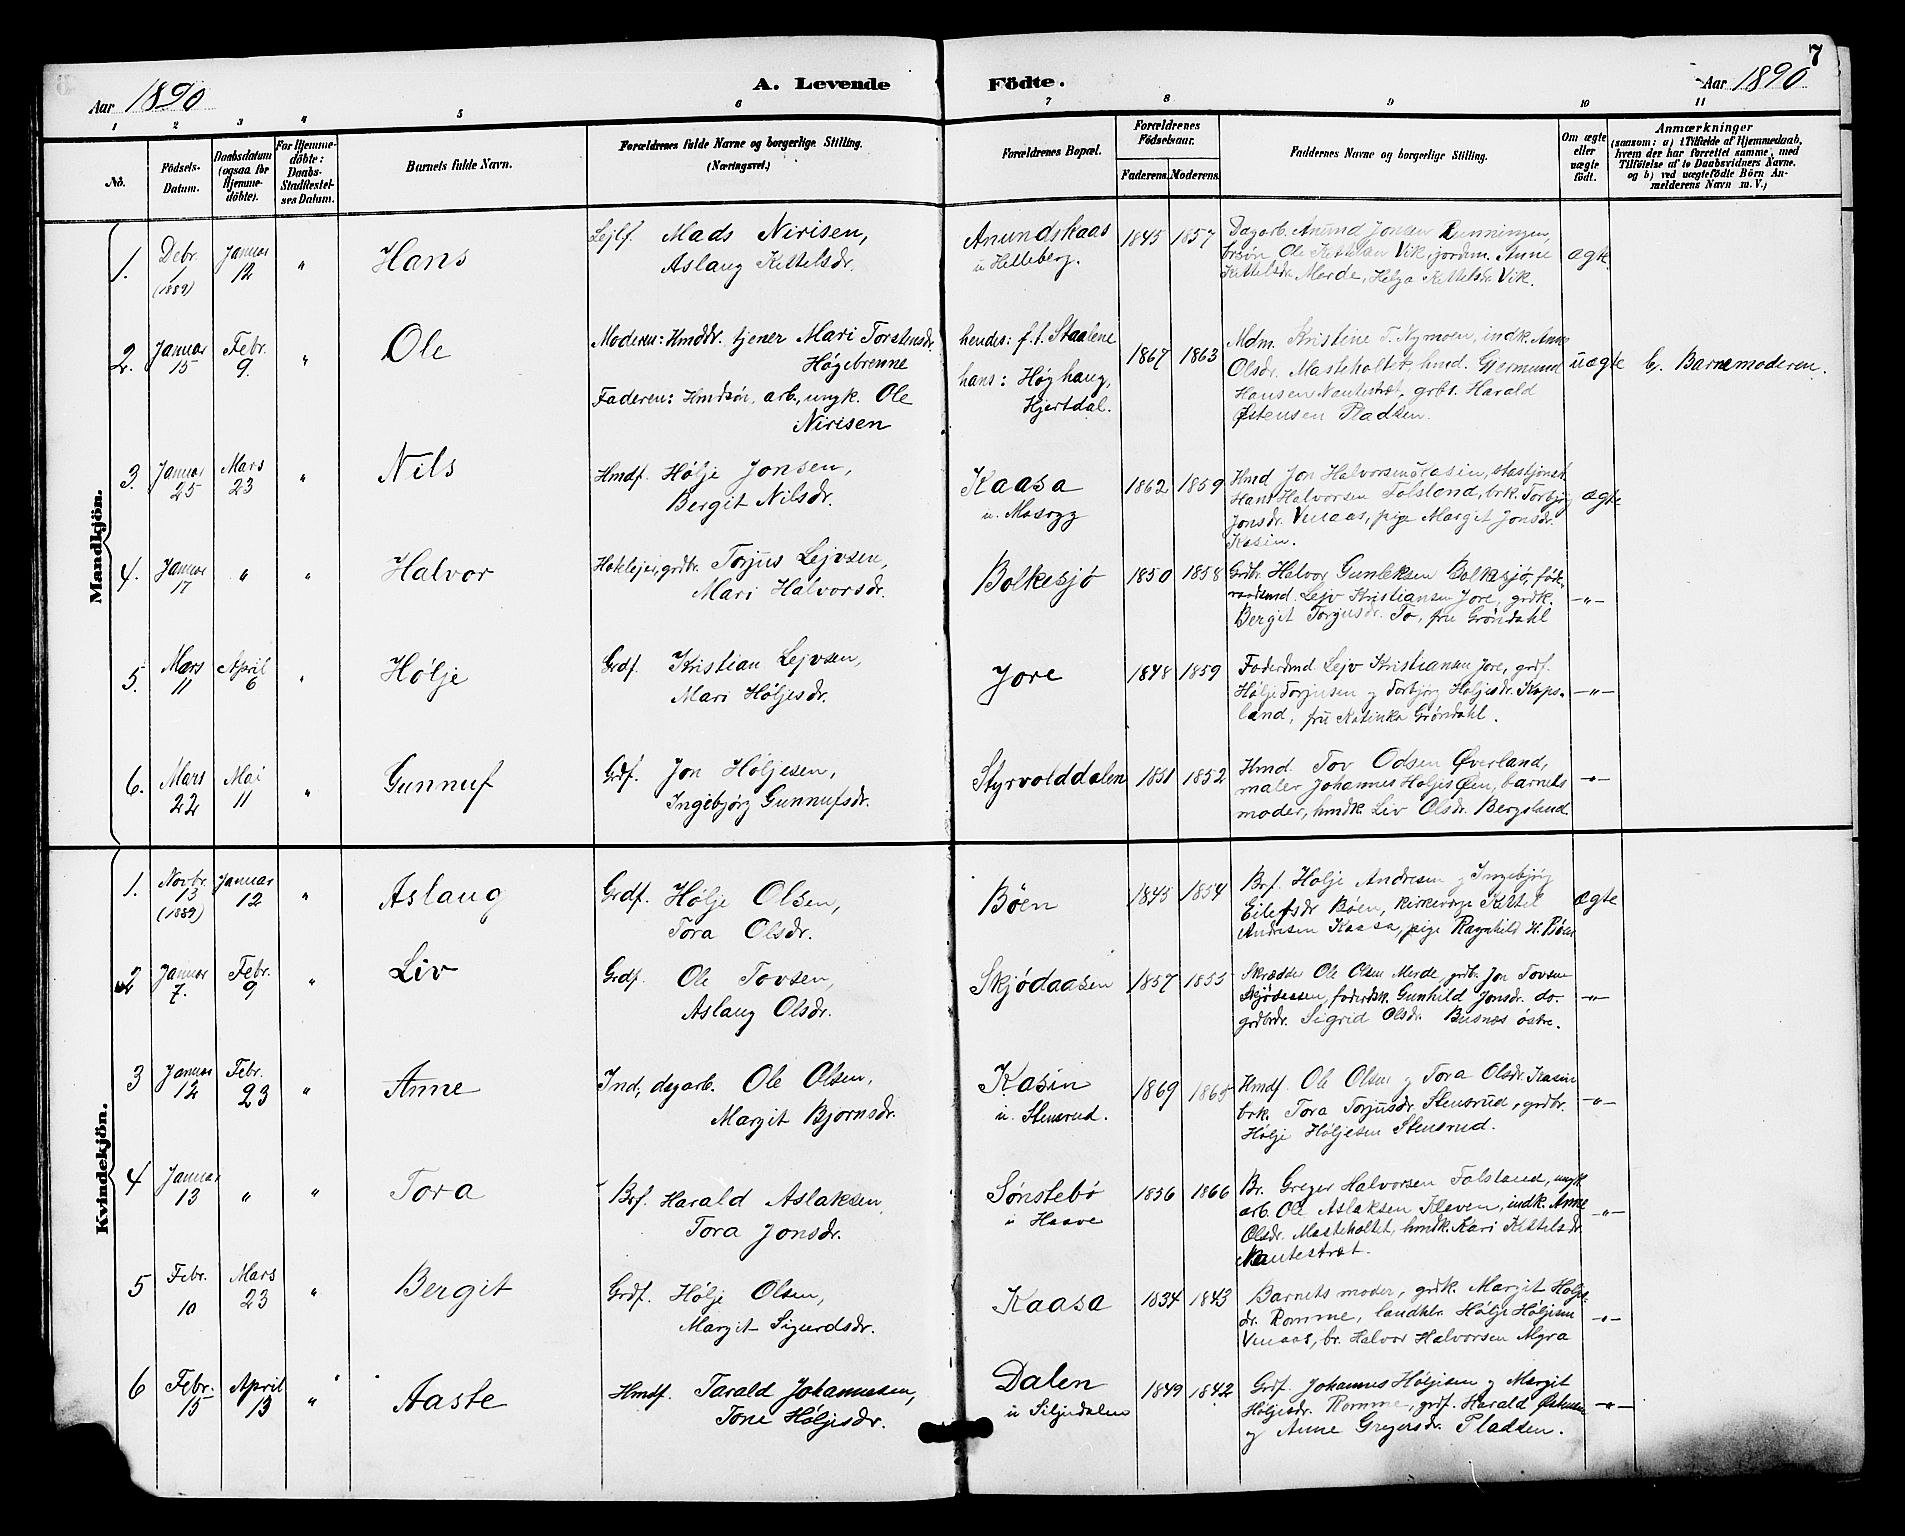 7
Aar 1890 A. Levende Födte. Aar 1890
1 2 3 4 5 6 7 8 9 10 11
No.
Födsels-
Datum.
Daabsdatum
(ogsaa for
Hjemme-
döbte).
For Hjemme-
döbte:
Daabs-
Stadfestel-
ses Datum.
Barnets fulde Navn.
Forældrenes fulde Navne og borgerlige Stilling.
(Næringsvei.)
Forældrenes Bopæl.
Forældrenes
Födselsaar.
Faderens. Moderens.
Faddernes Navne og borgerlige Stilling.
Om ægte
eller
uægte
födt.
Anmærkninger
(saasom: a) i Tilfælde af Hjemmedaab,
hvem der har forrettet samme, med
Tilföielse af to Daabsvidners Navne,
og b) ved uægtefödte Börn An-
melderens Navn m. V.;)
Mandkjön.
1. Debr. 1 (1889) Januar 12 " Hans
Lejlf. Mads Nirisen,
Aslaug Kittelsdr.
Anundskaas
u. Helleberg.
1845 1857
Dagarb. Anund Jonsen Runningen,
brsøn Ole Kittelsen Vik, jordm. Anne
Kittelsdr. Marde, Helga Kittelsdr. Vik.
ægte
2. Januar 15 Febr. 9. " Ole
Moderen: Hmddr. tjener Mari Torstensdr.
Høgebrenne
Faderen: Hmdsøn, arb., ungk. Ole
Nirisen
hendes: f. t. Staalene
hans: Høghaug,
Hjertdal.
1867 1863
Mdm. Kristine T. Nymoen, indk. Anne
Olsdr. Masteholtet, hmd. Gjermund
Hansen Nautestræt, grbs. Harald
Østensen Pladsen.
uægte b). Barnemoderen.
3. Januar 25 Mars 23 " Nils
Hmdf. Hølje Jonsen,
Bergit Nilsdr.
Kaasa
u. Moen
1862 1859
Hmd Jon Halvorsen Kasin,
Hans Halvorsen Folsland, brk. Torbjør
Jonsdr. Vinaas, pige Margit Jonsdr.
Kasin.
ægte
4. Januar 17 " " Halvor
grdbr. Torjus Lejvsen,
Mari Halvorsdr.
Bolkesjø
1850 1858
Grdbr. Halvor Gunleksen Bolkesjø, føde-
raadsmd. Lejv Kristiansen Jore, grdk.
Bergit Torjusdr. To, fru Grøndahl
—"—
5. Mars 11 April 6 " Hølje
Grdf. Kristian Lejvsen,
Mari Høljesdr.
Jore
1848 1859
Foderdmd Lejv Kristiansen Jore, grdf.
Hølje Torjusen og Torbjørg Høljesdr. Kops-
land, fru Katinka Grøndahl.
—"—
6. Mars 22 Mai 11 " Gunnuf
Grdf. Jon Høljesen,
Ingebjørg Gunnufsdr.
Styrvolddalen
1851 1852
Hmd. Tov Odsen Øverland,
maler Johannes Høljes Øen, barnets
moder, hmdk. Liv Olsdr. Bergsland
—"—
Kvindekjön.
1. Novbr. 13 (1889) Januar 12 " Aslaug
Grdf. Hølje Olsen,
Tora Olsdr.
Bøen
1845 1854
Brf. Holje Andresen og Ingebjørg
Eilefsdr Bøen, kirkeværge Kittel
Andresen Kaasa, pige Ragnhild H. Bøen
ægte
2 Januar 7. Febr. 9 " Liv
Grdf. Ole Tovsen,
Aslaug Olsdr.
Skjødaasen
1857 1855
Skrædder Ole Olsen Merde, grdbr. Jon Tovsen
Skjødaasen, foderdsk. Gunhild Jonsdr. do.
grdbrdr. Sigrid Olsdr. Busnæs østre.
—"—
3 Januar 12 Febr. 23 " Anne
Ind., dagarb. Ole Olsen,
Margit Bjornsdr.
Kasin
u. Stensrud.
1869 1865
Hmdf. Ole Olsen og Tora Olsdr. Kasin
brk. Tora Torjusdr Stensrud, grdbr.
Hølje Høljesen Stensrud.
—"—
4 Januar 13 " " Tora
Brf. Harald Aslaksen
Tora Jonsdr.
Sønstebø
u Haave
1856 1866
Br. Greger Halvorsen Folsland, ungk.
arb. Ole Aslaksen Kleven, indk. Anne
Olsdr. Masteholtet, hmdk. Kari Kittelsdr.
Nautestræt.
—"—
5 Febr. 10 Mars 23 " Bergit
Grdf. Hølje Olsen,
Margit Sigurdsdr.
Kaasa
1834 1843
Barnets moder, grdk. Margit Høljes-
dr. Romme, landhlr. Hølje Høljesen
Vinaas, br. Halvor Halvorsen Myra
—"—
6 Febr. 15 April 13 " Aaste
Hmdf. Tarald Johannesen,
Tone Høljesdr.
Dalen
u Siljudalen
1849 1842
Grdf. Johannes Høljesen og Margit
Høljesdr. Romme, grdf. Harald Østensen
og Anne Gregersdr. Pladsen.
—"—